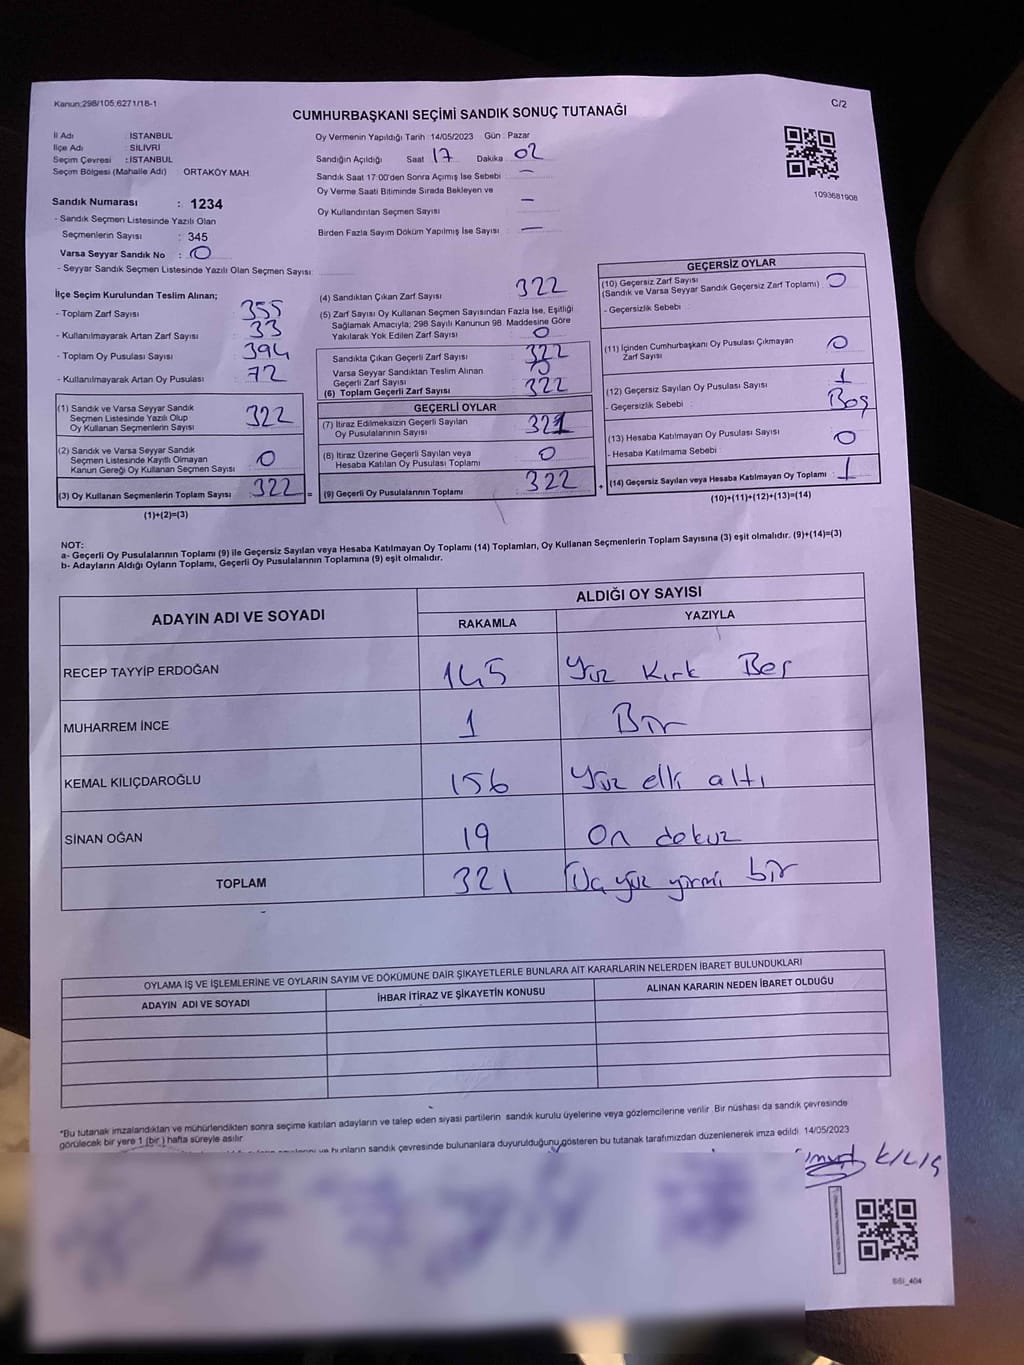 Kanun;298/105;6271/18-1
CUMHURBAŞKANI SEÇİMİ SANDIK SONUÇ TUTANAĞI
C/2
İl Adı : İSTANBUL
İlçe Adı : SİLİVRİ
Seçim Çevresi : İSTANBUL
Seçim Bölgesi (Mahalle Adı) ORTAKÖY MAH.
Sandık Numarası : 1234
- Sandık Seçmen Listesinde Yazılı Olan
Seçmenlerin Sayısı : 345
Varsa Seyyar Sandık No : 0
- Seyyar Sandık Seçmen Listesinde Yazılı Olan Seçmen Sayısı:
Oy Vermenin Yapıldığı Tarih : 14/05/2023 Gün : Pazar
Sandığın Açıldığı Saat 17 Dakika 02
Sandık Saat 17:00'den Sonra Açımış İse Sebebi : —
Oy Verme Saati Bitiminde Sırada Bekleyen ve
Oy Kullandırılan Seçmen Sayısı —
Birden Fazla Sayım Döküm Yapılmış İse Sayısı : —
1093681908
İlçe Seçim Kurulundan Teslim Alınan;
- Toplam Zarf Sayısı : 355
- Kullanılmayarak Artan Zarf Sayısı : 33
- Toplam Oy Pusulası Sayısı : 394
- Kullanılmayarak Artan Oy Pusulası : 72
(1) Sandık ve Varsa Seyyar Sandık
Seçmen Listesinde Yazılı Olup
Oy Kullanan Seçmenlerin Sayısı : 322
(2) Sandık ve Varsa Seyyar Sandık
Seçmen Listesinde Kayıtlı Olmayan
Kanun Gereği Oy Kullanan Seçmen Sayısı : 0
(3) Oy Kullanan Seçmenlerin Toplam Sayısı : 322 =
(1)+(2)=(3)
(4) Sandıktan Çıkan Zarf Sayısı : 322
(5) Zarf Sayısı Oy Kullanan Seçmen Sayısından Fazla İse, Eşitliği
Sağlamak Amacıyla, 298 Sayılı Kanunun 98. Maddesine Göre
Yakılarak Yok Edilen Zarf Sayısı : 0
Sandıkta Çıkan Geçerli Zarf Sayısı : 322
Varsa Seyyar Sandıktan Teslim Alınan
Geçerli Zarf Sayısı
(6) Toplam Geçerli Zarf Sayısı : 322
GEÇERLİ OYLAR
(7) İtiraz Edilmeksizin Geçerli Sayılan
Oy Pusulalarının Sayısı : 321
(8) İtiraz Üzerine Geçerli Sayılan veya
Hesaba Katılan Oy Pusulası Toplamı : 0
(9) Geçerli Oy Pusulalarının Toplamı : 322 +
GEÇERSİZ OYLAR
(10) Geçersiz Zarf Sayısı
(Sandık ve Varsa Seyyar Sandık Geçersiz Zarf Toplamı) : 0
- Geçersizlik Sebebi :
(11) İçinden Cumhurbaşkanı Oy Pusulası Çıkmayan
Zarf Sayısı : 0
(12) Geçersiz Sayılan Oy Pusulası Sayısı : 1
- Geçersizlik Sebebi : Boş
(13) Hesaba Katılmayan Oy Pusulası Sayısı : 0
- Hesaba Katılmama Sebebi :
(14) Geçersiz Sayılan veya Hesaba Katılmayan Oy Toplamı : 1
(10)+(11)+(12)+(13)=(14)
NOT:
a- Geçerli Oy Pusulalarının Toplamı (9) ile Geçersiz Sayılan veya Hesaba Katılmayan Oy Toplamı (14) Toplamları, Oy Kullanan Seçmenlerin Toplam Sayısına (3) eşit olmalıdır. (9)+(14)=(3)
b- Adayların Aldığı Oyların Toplamı, Geçerli Oy Pusulalarının Toplamına (9) eşit olmalıdır.
ADAYIN ADI VE SOYADI ALDIĞI OY SAYISI
RAKAMLA YAZIYLA
RECEP TAYYİP ERDOĞAN 145 Yüz Kırk Beş
MUHARREM İNCE 1 Bir
KEMAL KILIÇDAROĞLU 156 Yüz elli altı
SİNAN OĞAN 19 On dokuz
TOPLAM 321 Üç yüz yirmi bir
OYLAMA İŞ VE İŞLEMLERİNE VE OYLARIN SAYIM VE DÖKÜMÜNE DAİR ŞİKAYETLERLE BUNLARA AİT KARARLARIN NELERDEN İBARET BULUNDUKLARI
ADAYIN ADI VE SOYADI İHBAR İTİRAZ VE ŞİKAYETİN KONUSU ALINAN KARARIN NEDEN İBARET OLDUĞU
*Bu tutanak imzalandıktan ve mühürlendikten sonra seçime katılan adayların ve talep eden siyasi partilerin sandık kurulu üyelerine veya gözlemcilerine verilir. Bir nüshası da sandık çevresinde
görülecek bir yere 1 (bir ) hafta süreyle asılır.
bunların sandık çevresinde bulunanlara duyurulduğunu gösteren bu tutanak tarafımızdan düzenlenerek imza edildi. 14/05/2023
KILIÇ